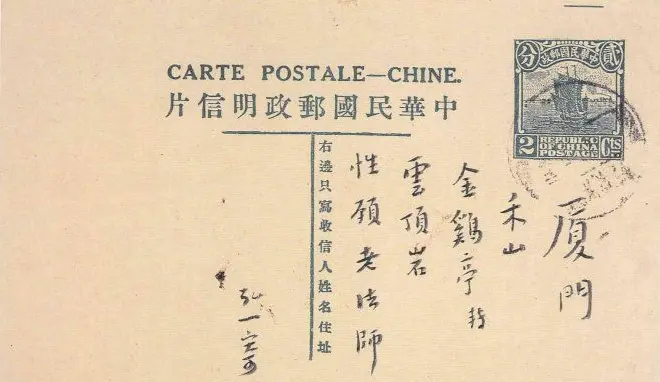 CARTE POSTALE—CHINE.
片信明政郵國民華中
分 政郵國民華中 貳
2 REPUBLIC OF CHINA POSTAGE Cts
厦門
禾山
金鷄亭轉
雲頂岩
性願老法師
右邊只寫收信人姓名住址
弘一寄